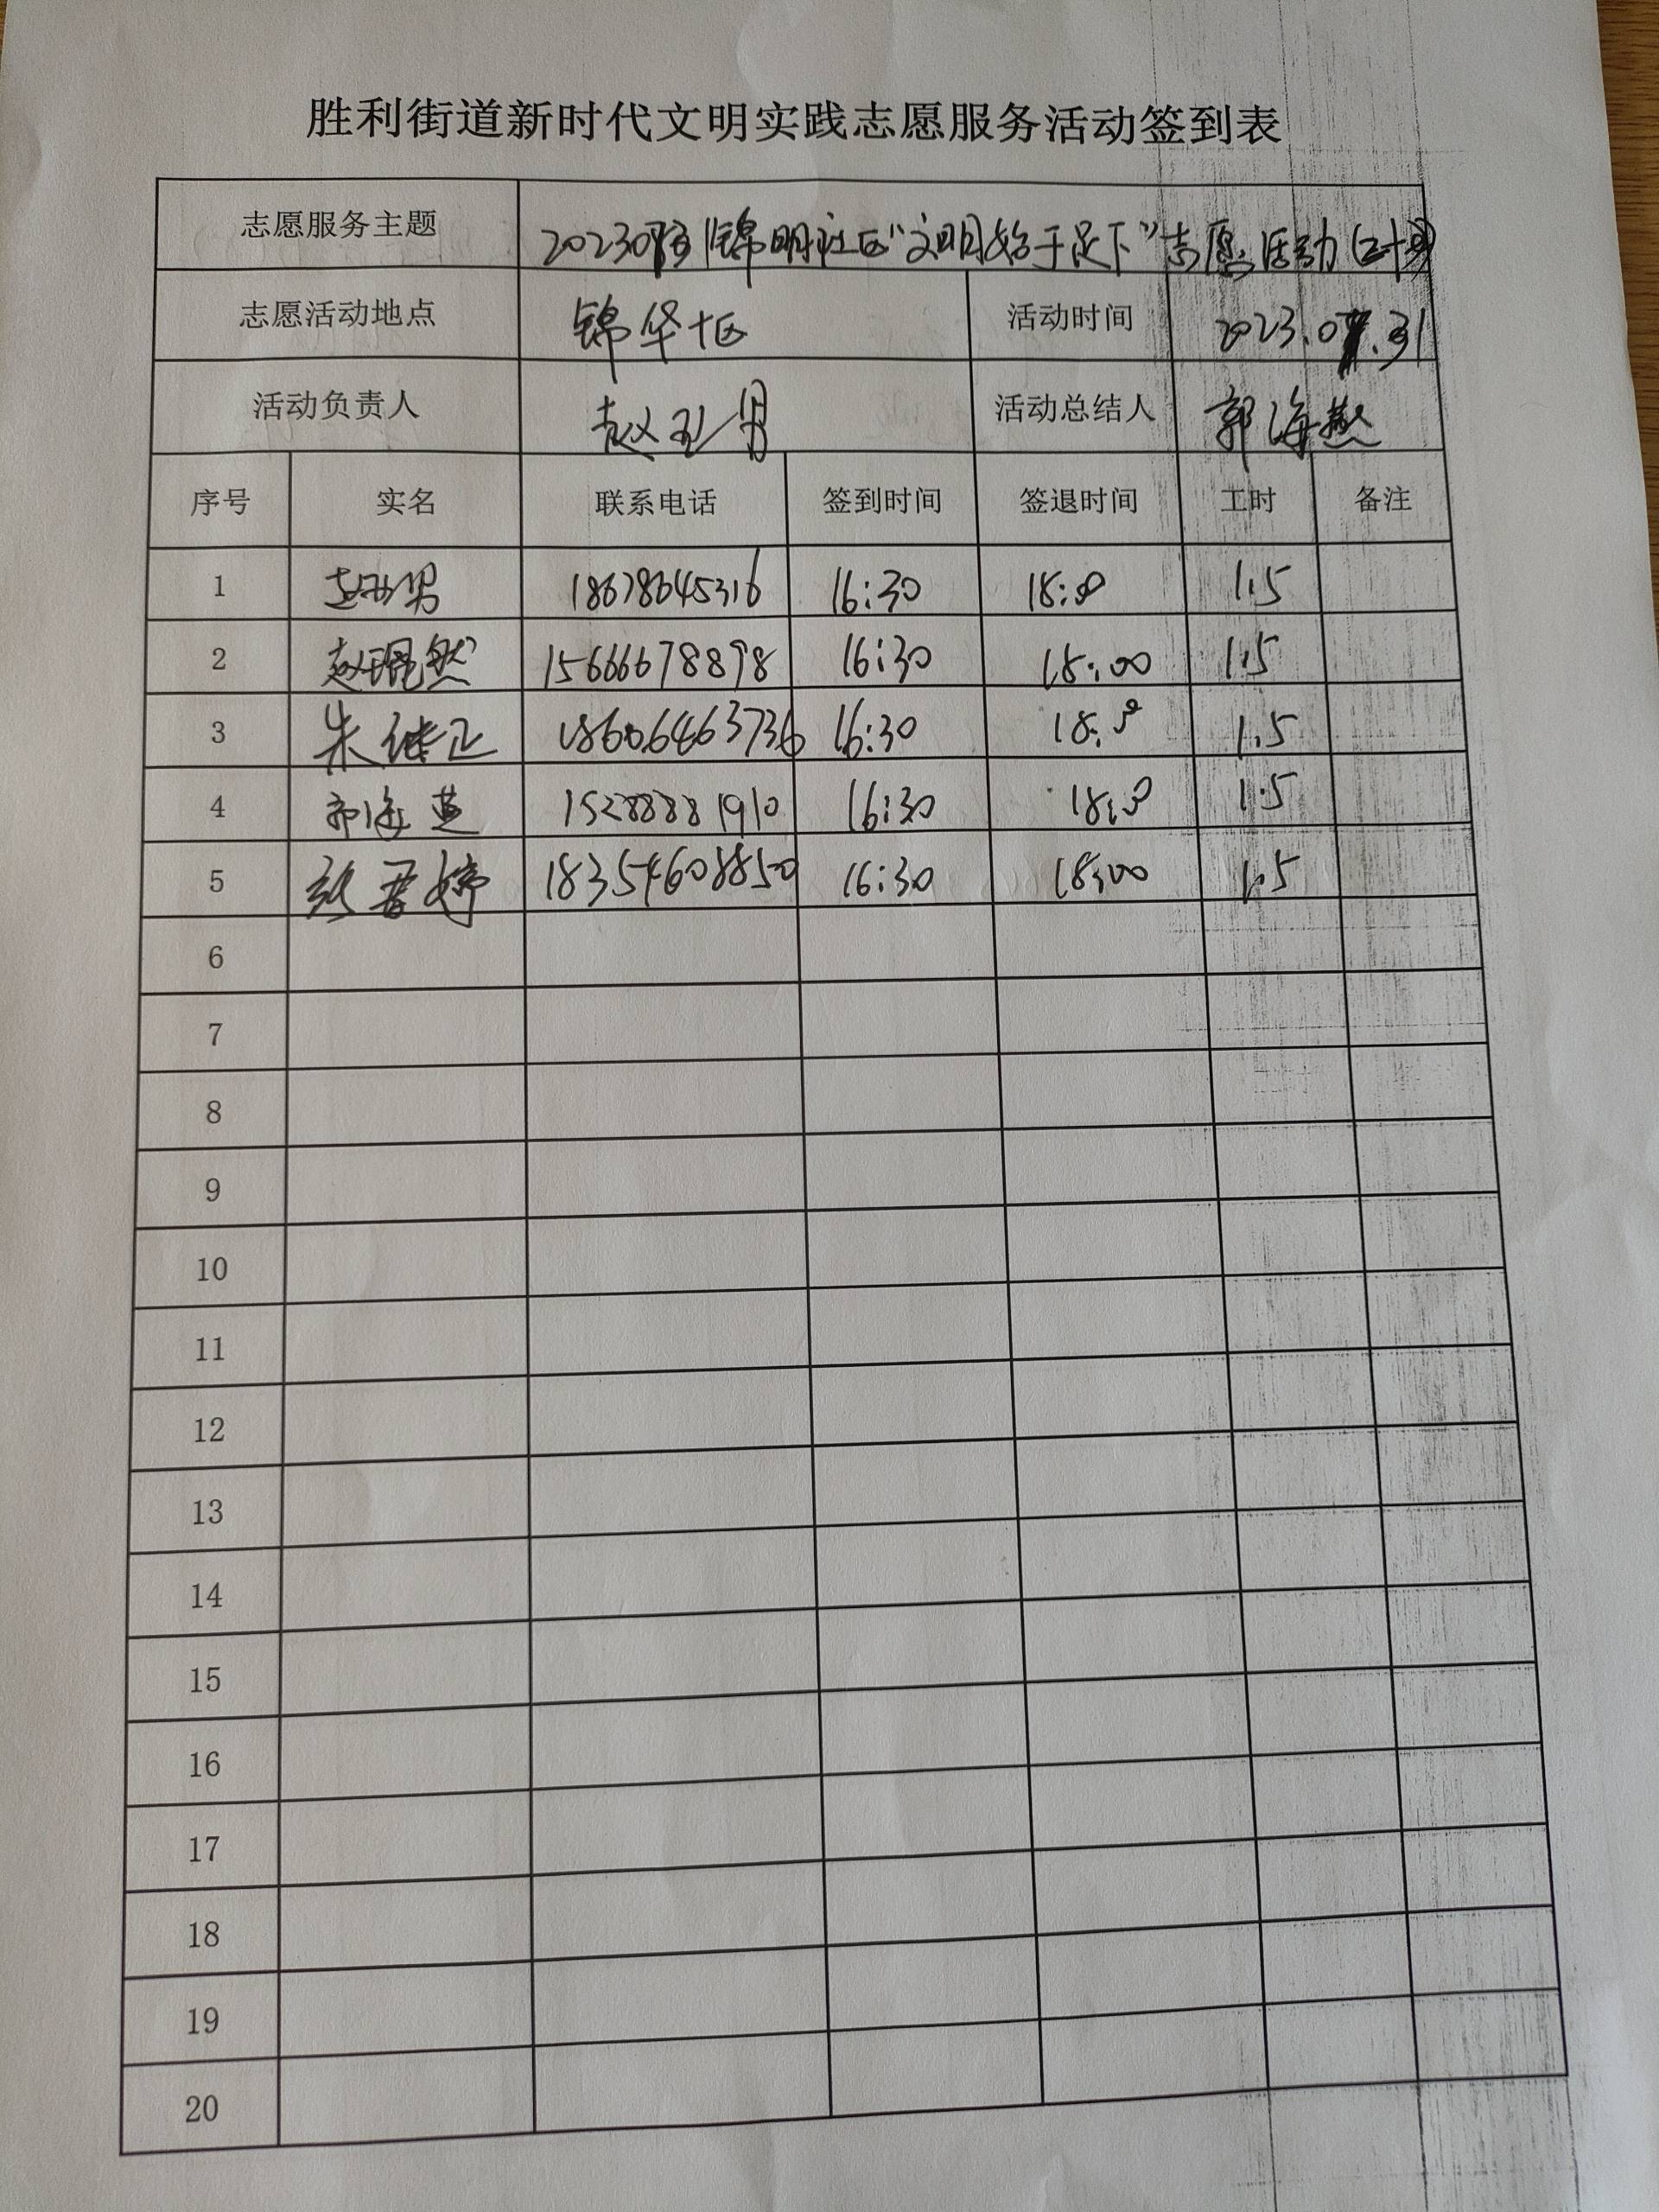 胜利街道新时代文明实践志愿服务活动签到表
志愿服务主题 锦明社区“文明始于足下”志愿活动
志愿活动地点 锦华十区 活动时间 2023.07.31
活动负责人 赵 男 活动总结人 郭海燕
序号 实名 联系电话 签到时间 签退时间 工时 备注
1 男 18678645316 16:30 18:00 1.5
2 赵 然 15666678898 16:30 18:00 1.5
3 朱继正 18606463736 16:30 18:00 1.5
4 郭海燕 15288881910 16:30 18:00 1.5
5 婷 18354608850 16:30 18:00 1.5
6
7
8
9
10
11
12
13
14
15
16
17
18
19
20